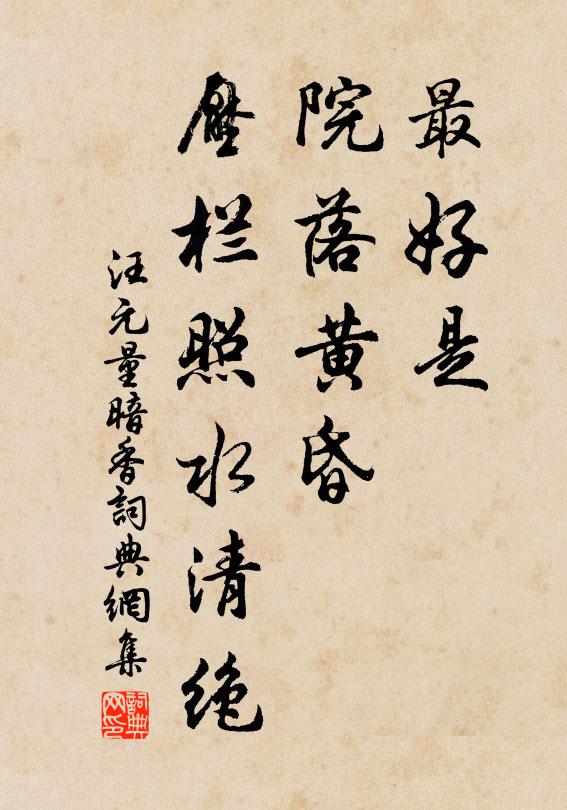 最好是
院落黄昏
壓栏照水清绝
汪元量暗香詞典網集
詞典网印